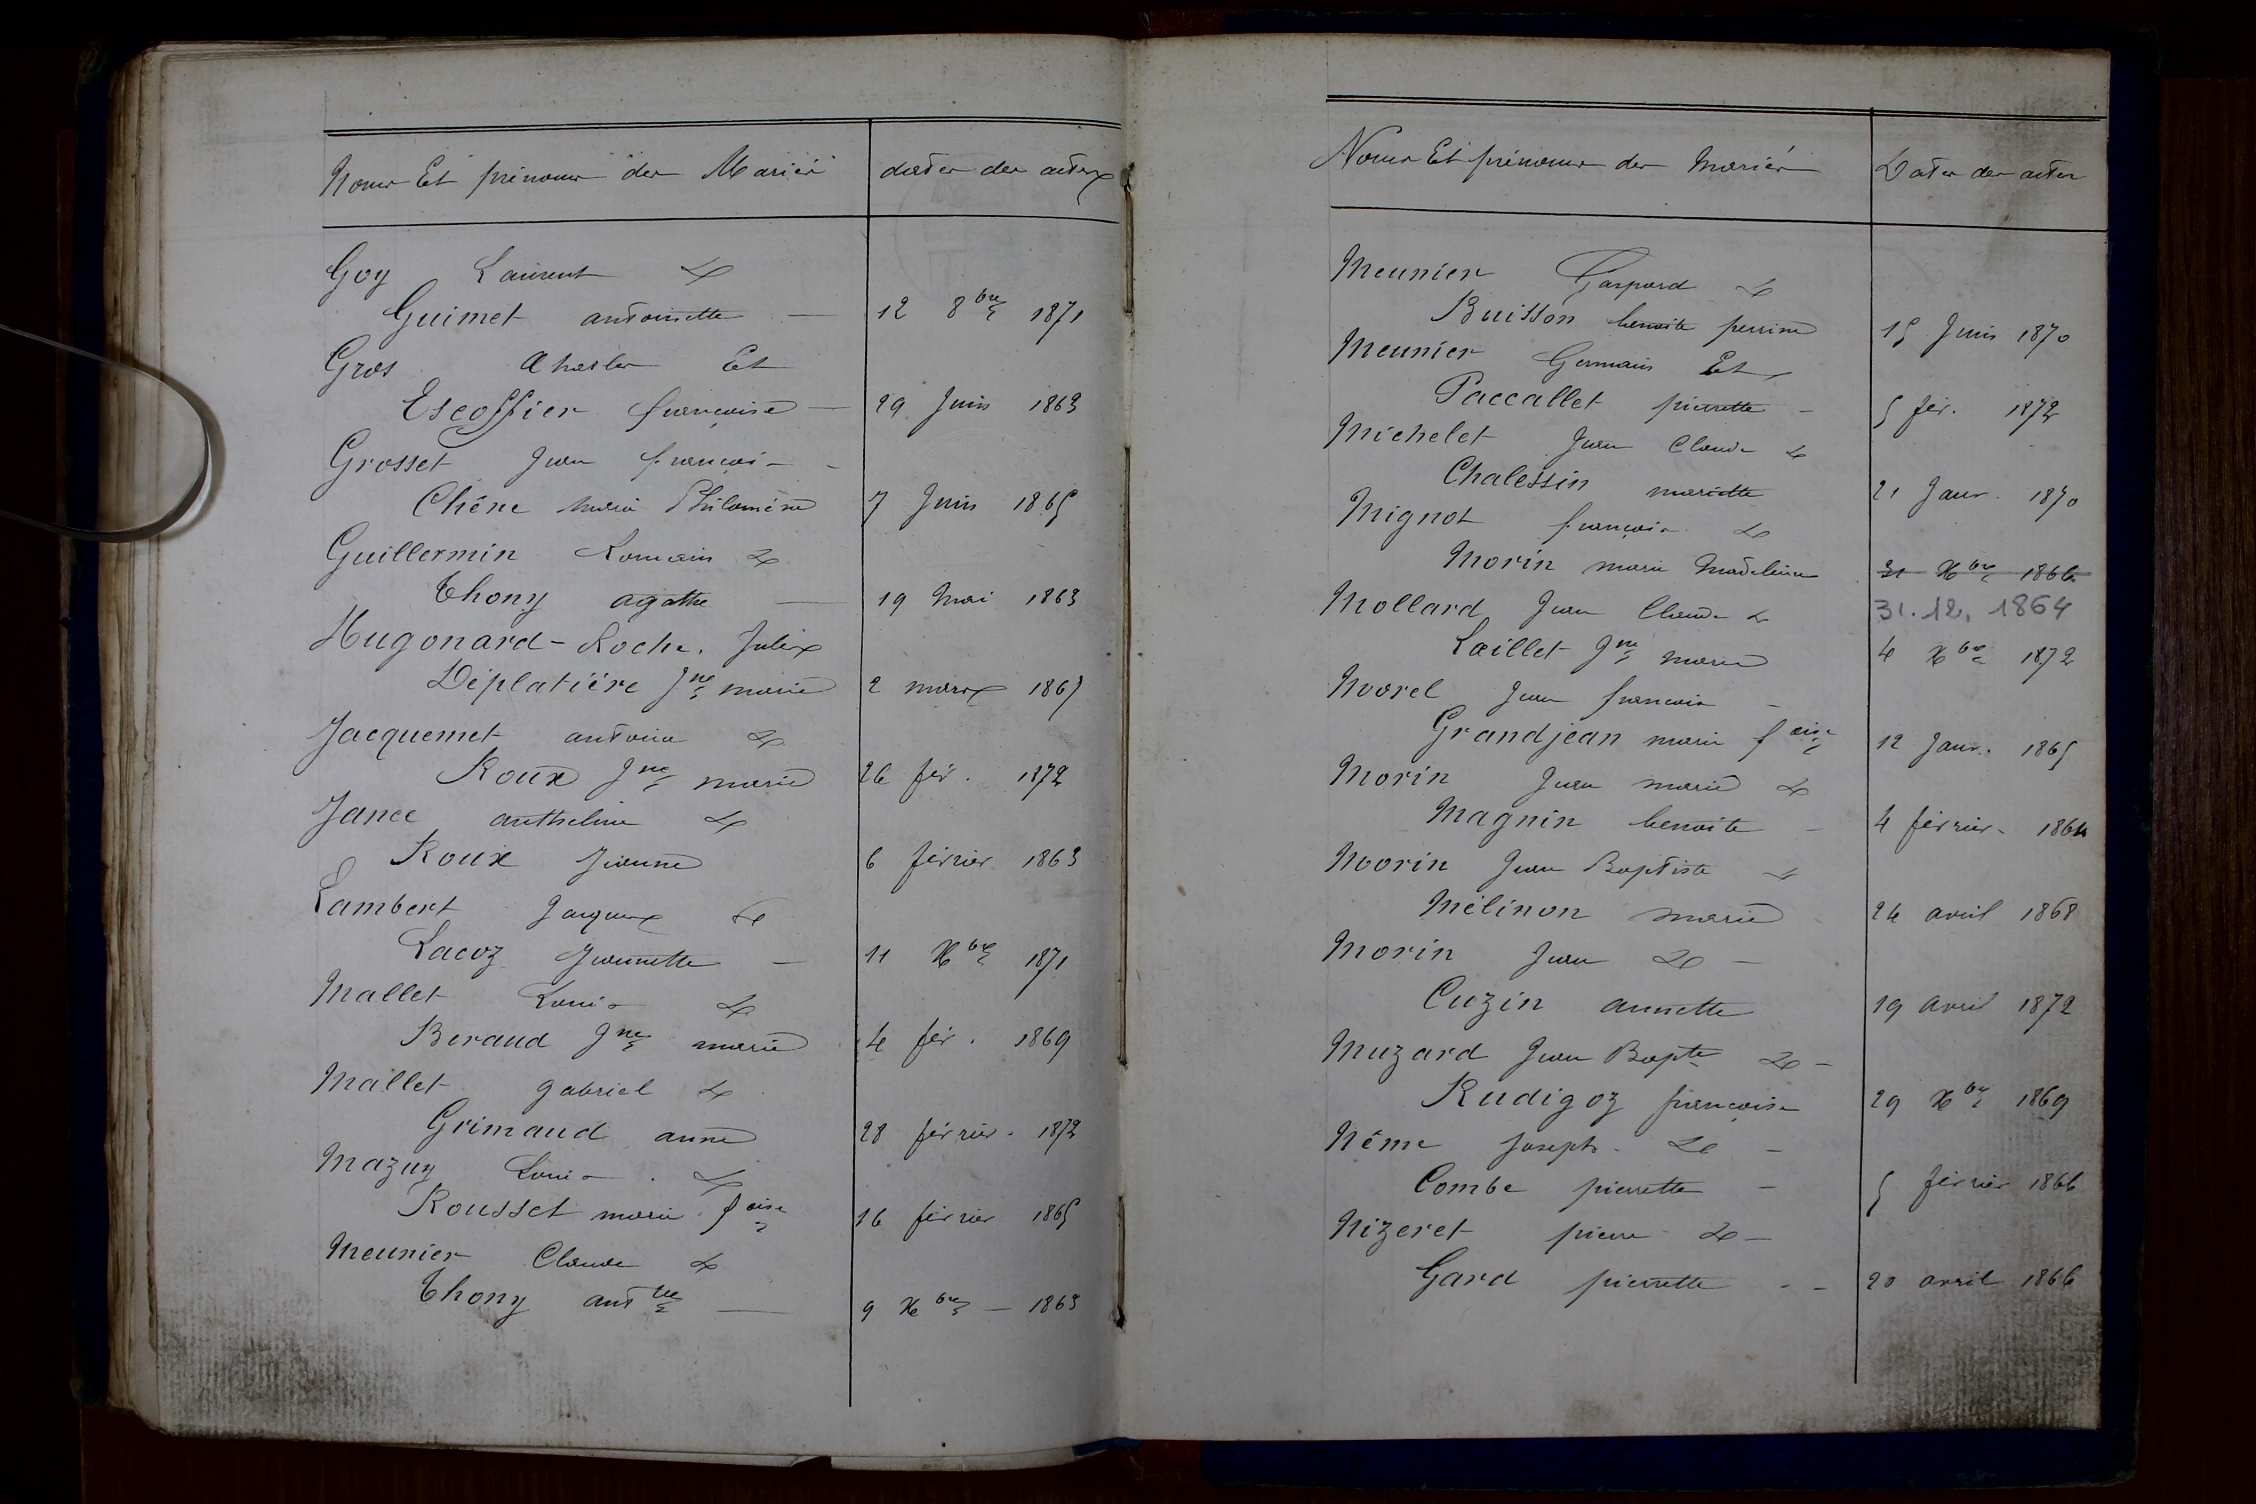 Noms Et prénoms des Mariés dates des actes
Goy Laurent &
Guimet antoinette — 12 8bre 1871
Gros Charles Et
Escoffier françoise — 29 Juin 1863
Grosset Jean françois -
Chêne marie Philomène 7 Juin 1865
Guillermin Romain &
Thony agathe — 19 Mai 1863
Hugonard-Roche. Julie
Déplatière Jne marie 2 mars 1867
Jacquemet antoine &
Roux Jne marie 26 fév. 1872
Jance anthelme &
Roux Jeanne 6 février 1863
Lambert Jacques &
Lacoz Jeannette — 11 Xbre 1871
Mallet Louis &
Beraud Jne marie 4 fév. 1869
Mallet gabriel &
Grimaud anne 28 février. 1872
Mazuy Louis. &
Rousset marie foise 16 février 1865
Meunier Claude &
Thony antte — 9 Xbre — 1863
Noms Et prénoms des mariés Dates des actes
Meunier Gaspard &
Buisson benoite perrine 15 Juin 1870
Meunier Germain Et
Paccallet pierrette - 5 fév. 1872
Michelet Jean Claude &
Chalessin mariette 21 Janv. 1870
Mignot françois &
Morin marie Madeleine 31 Xbre 1866
31.12.1864
Mollard Jean Claude &
Laillet Jne marie 4 Xbre 1872
Moorel Jean françois -
Grandjean marie foise 12 Janv. 1865
Morin Jean marie &
Magnin benoite - 4 février - 1864
Moorin Jean Baptiste &
Mélinon marie 24 avril 1868
Morin Jean & -
Cuzin annette 19 avril 1872
Muzard Jean Bapte & -
Rudigoz françoise 29 Xbre 1869
Nême Joseph. & -
Combe pierrette - 5 février 1866
Nizeret pierre & -
Gard pierrette - - 20 avril 1866